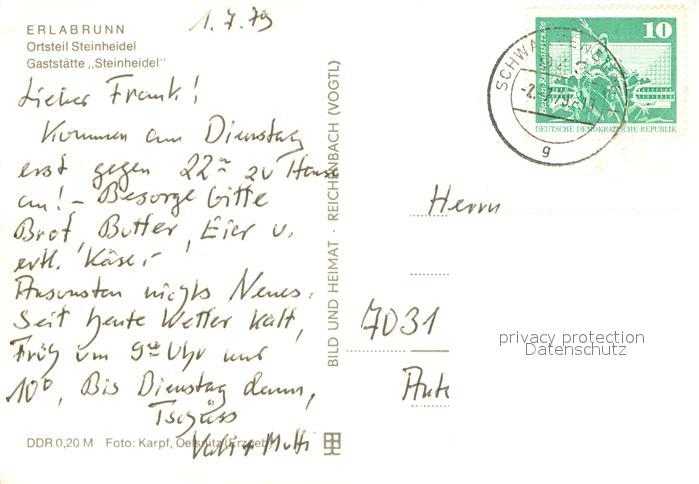 ERLABRUNN
Ortsteil Steinheidel
Gaststätte „Steinheidel"
1.7.79
Lieber Frank!
Kommen am Dienstag
erst gegen 22 zu Hause
an! – Besorge bitte
Brot, Butter, Eier u.
evtl. Käse.
Ansonsten nichts Neues.
Seit heute Wetter kalt,
Früh um 9 Uhr nur
10°, Bis Dienstag dann,
Tschüss
Vati + Mutti
DDR 0,20 M Foto: Karpf, Oelsnitz (Erzgeb.)
BILD UND HEIMAT · REICHENBACH (VOGTL)
SCHWA
g
10
Berlin
DEUTSCHE DEMOKRATISCHE REPUBLIK
Herrn
7031
privacy protection
Datenschutz